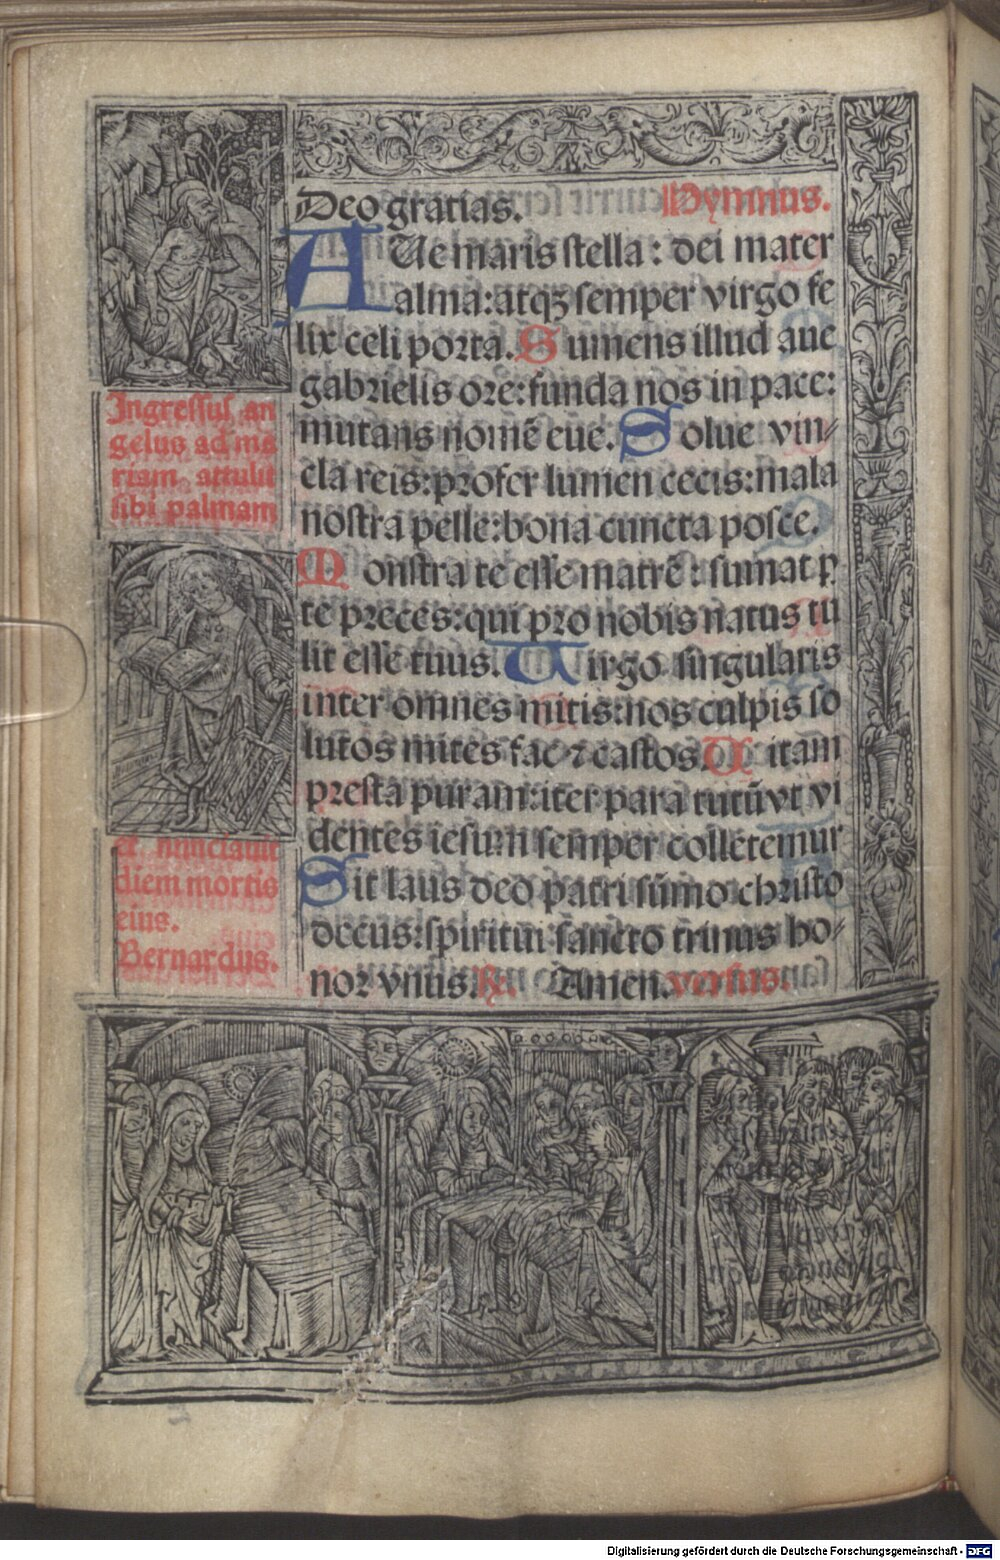 Deo gratias. Hymnus.
AUe maris stella : dei mater
alma: atqꝫ semper virgo fe
lix celi porta. Sumens illud aue
gabrielis ore: funda nos in pace:
mutans nomē eue. Solue vin⸗
cla reis: profer lumen cecis: mala
nostra pelle: bona cuncta posce.
Monstra te esse matrē : sumat ꝑ
te preces: qui pro nobis natus tu
lit esse tuus. Uirgo singularis
inter omnes mitis: nos culpis so
lutos mites fac ⁊ castos. Uitam
presta puram: iter para tutū vt vi
dentes iesum semper colletemur
Sit laus deo patri sūmo christo
decus: spiritui sancto trinus ho⸗
nor vnus. ꝶ. Amen. versus.
Ingressus an
gelus ad ma
riam attulit
sibi palmam
et nunciauit
diem mortis
eius.
Bernardus.
Digitalisierung gefördert durch die Deutsche Forschungsgemeinschaft - DFG